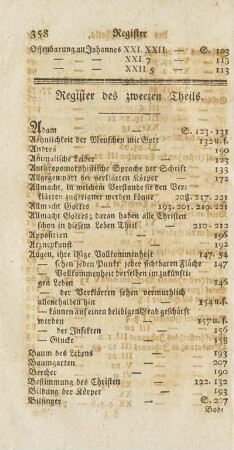 358 Register
Offenbarung an Johannes XXI. XXII. — S. 103
— — XXI. 7 — 113
— — XXII. 5 — 113
Register des zweeten Theils.
Adam — S. 123-131
Aehnlichkeit der Menschen mit Gott 132 u.f.
Andres — 190
Animalische Leiber — 123
Anthropomorphistische Sprache der Schrift 133
Allgegenwart der verklärten Körper 172
Allmacht, in welchem Verstande sie den Verklärten
zugeeignet werden könne 208. 217. 221
Allmacht Gottes — 193. 201. 210. 221
Allmacht Gottes; daran haben alle Christen
schon in diesem Leben Theil — 210-212
Apposition — 196
Arzneykunst — 192
Augen, ihre itzige Vollkommenheit 147. 54
— sehen jeden Punkt jeder sichtbaren Fläche 147
— Vollkommenheit derselben im zukünftigen
Leben — 146
— der Verklärten sehen vermuthlich
allenthalben hin — 154 u.f.
— können auf einen beliebigen Grad geschärft
werden — 157 u.f.
— der Insekten — 156
— Glucke — 158
Baum des Lebens — 193
Baumgarten — 207
Bercher — 190
Bestimmung des Christen — 122. 132
Bildung der Körper — 193
Bilfinger — S. 207
Bode